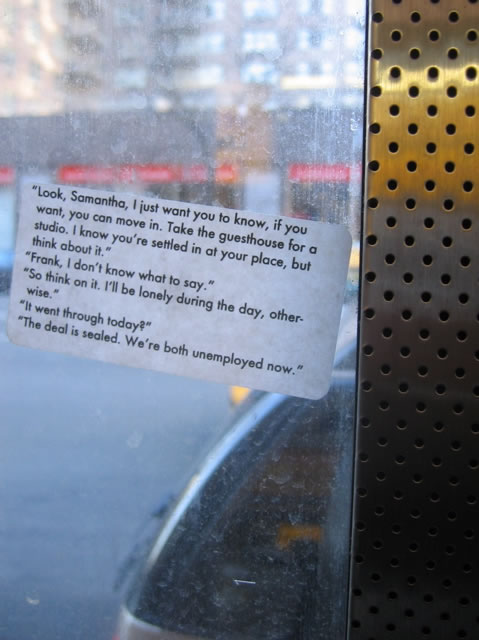 “Look, Samantha, I just want you to know, if you
want, you can move in. Take the guesthouse for a
studio. I know you’re settled in at your place, but
think about it.”
“Frank, I don’t know what to say.”
“So think on it. I’ll be lonely during the day, other-
wise.”
“It went through today?”
“The deal is sealed. We’re both unemployed now.”